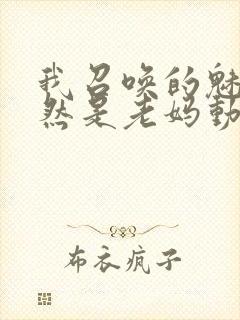 我召唤的魅
然是老妈動
布衣疯子